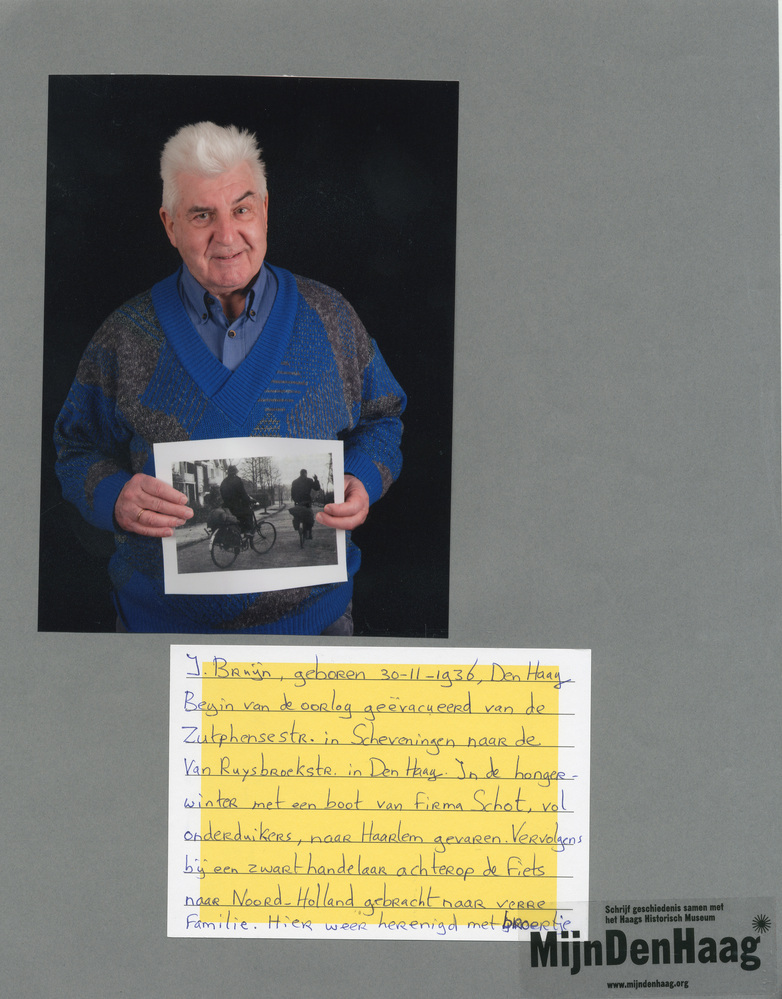 J. Bruijn, geboren 30-11-1936, Den Haag
Begin van de oorlog geëvacueerd van de
Zutphensestr. in Scheveningen naar de
Van Ruysbroekstr. in Den Haag. In de honger-
winter met een boot van Firma Schot, vol
onderduikers, naar Haarlem gevaren. Vervolgens
bij een zwarthandelaar achterop de fiets
naar Noord-Holland gebracht naar verre
Familie. Hier weer herenigd met broertje
Schrijf geschiedenis samen met
het Haags Historisch Museum
MijnDenHaag
www.mijndenhaag.org